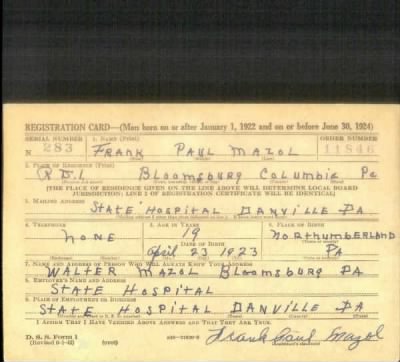 REGISTRATION CARD—(Men born on or after January 1, 1922 and on or before June 30, 1924)
SERIAL NUMBER 1. NAME (Print) ORDER NUMBER
N 283 FRANK PAUL MAZOL 11846
2. PLACE OF RESIDENCE (Print)
R D. 1 BLOOMSBURG COLUMBIA PA
[THE PLACE OF RESIDENCE GIVEN ON THE LINE ABOVE WILL DETERMINE LOCAL BOARD
JURISDICTION; LINE 2 OF REGISTRATION CERTIFICATE WILL BE IDENTICAL]
3. MAILING ADDRESS
STATE HOSPITAL DANVILLE PA
4. TELEPHONE 5. AGE IN YEARS 6. PLACE OF BIRTH
NONE 19 NORTHUMBERLAND
DATE OF BIRTH
April 23 1923 PA
7. NAME AND ADDRESS OF PERSON WHO WILL ALWAYS KNOW YOUR ADDRESS
WALTER MAZOL BLOOMSBURG PA
8. EMPLOYER'S NAME AND ADDRESS
STATE HOSPITAL
9. PLACE OF EMPLOYMENT OR BUSINESS
STATE HOSPITAL DANVILLE PA
I AFFIRM THAT I HAVE VERIFIED ABOVE ANSWERS AND THAT THEY ARE TRUE.
D. S. S. Form 1 Frank Paul Mazol
(over)